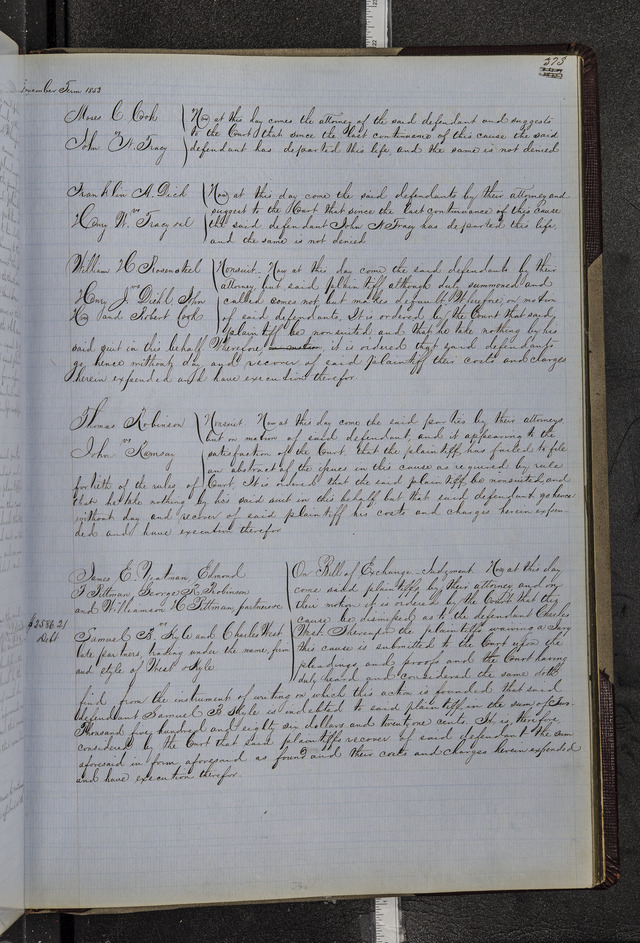 373
November Term 1853
Moses C Cook
vs
John F. Tracy
Now at this day comes the attorney of the said defendant and suggests
to the Court that since the last continuance of this cause the said
defendant has departed this life, and the same is not denied
Franklin A. Dick
vs
Henry W. Tracy et al
Now at this day come the said defendants by their attorney and
suggest to the Court that since the last continuance of this cause
the said defendant John F Tracy has departed this life,
and the same is not denied
William H
vs
Henry J. Diehl John
How and Robert Cook
Nonsuit. Now at this day come the said defendants by their
attorney but said plaintiff although duly summoned and
called comes not, but makes default. Wherefore, on motion
of said defendants, It is ordered by the Court that said
plaintiff be nonsuited and that he take nothing by his
said suit in this behalf Therefore, it is ordered that said defendants
go hence without day and recover of said plaintiff their costs and charges
herein expended and have execution therefor.
Thomas Robinson
vs
John Ramsay
Nonsuit. Now at this day come the said parties by their attorneys
but on motion of said defendant, and it appearing to the
satisfaction of the Court, that the plaintiff has failed to file
an abstract of the issues in this cause as required by rule
fortieth of the rules of Court, It is ordered that the said plaintiff be nonsuited, and
that he take nothing by his said suit in this behalf but that said defendant go hence
without day and recover of said plaintiff his costs and charges herein expen-
ded and have execution therefor
James E. Yeatman, Edmond
T Pittman George R. Robinson
and Williamson H Pittman partners
vs
Samuel B. Kyle and Charles West
late partners, trading under the name, firm
and style of West & Kyle
$2586.21
Debt
On Bill of Exchange - Judgment. Now at this day
come said plaintiffs by their attorney and on
their motion it is ordered by the Court that this
cause be dismissed as to the defendant Charles
West. Thereupon the plaintiffs waiving a Jury
this cause is submitted to the Court upon the
pleadings, and proofs and the Court having
duly heard and considered the same doth
find from the instrument of writing on which this action is founded that said
defendant Samuel B Kyle is indebted to said plaintiff in the sum of two-
thousand five hundred and eighty six dollars and twenty one cents. It is therefore
considered by the Court that said plaintiffs recover of said defendant the sum
aforesaid in form aforesaid as found and their costs and charges herein expended
and have execution therefor.